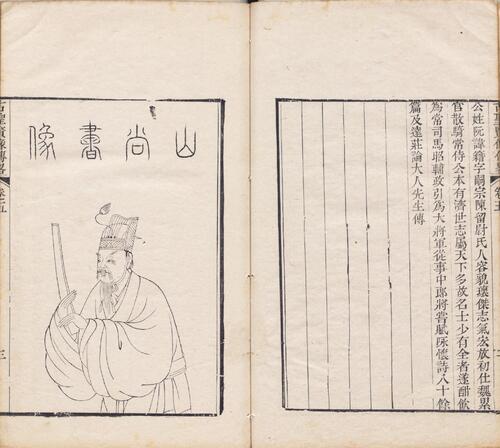 公姓阮諱籍字嗣宗陳留尉氏人容貌瓌傑志氣宏放初仕魏累
官散騎常侍公本有濟世志屬天下多故名士少有全者遂酣飲
為常司馬昭輔政引為大將軍從事中郎將嘗賦詠懷詩八十餘
篇及達莊論大人先生傳
山尚書像